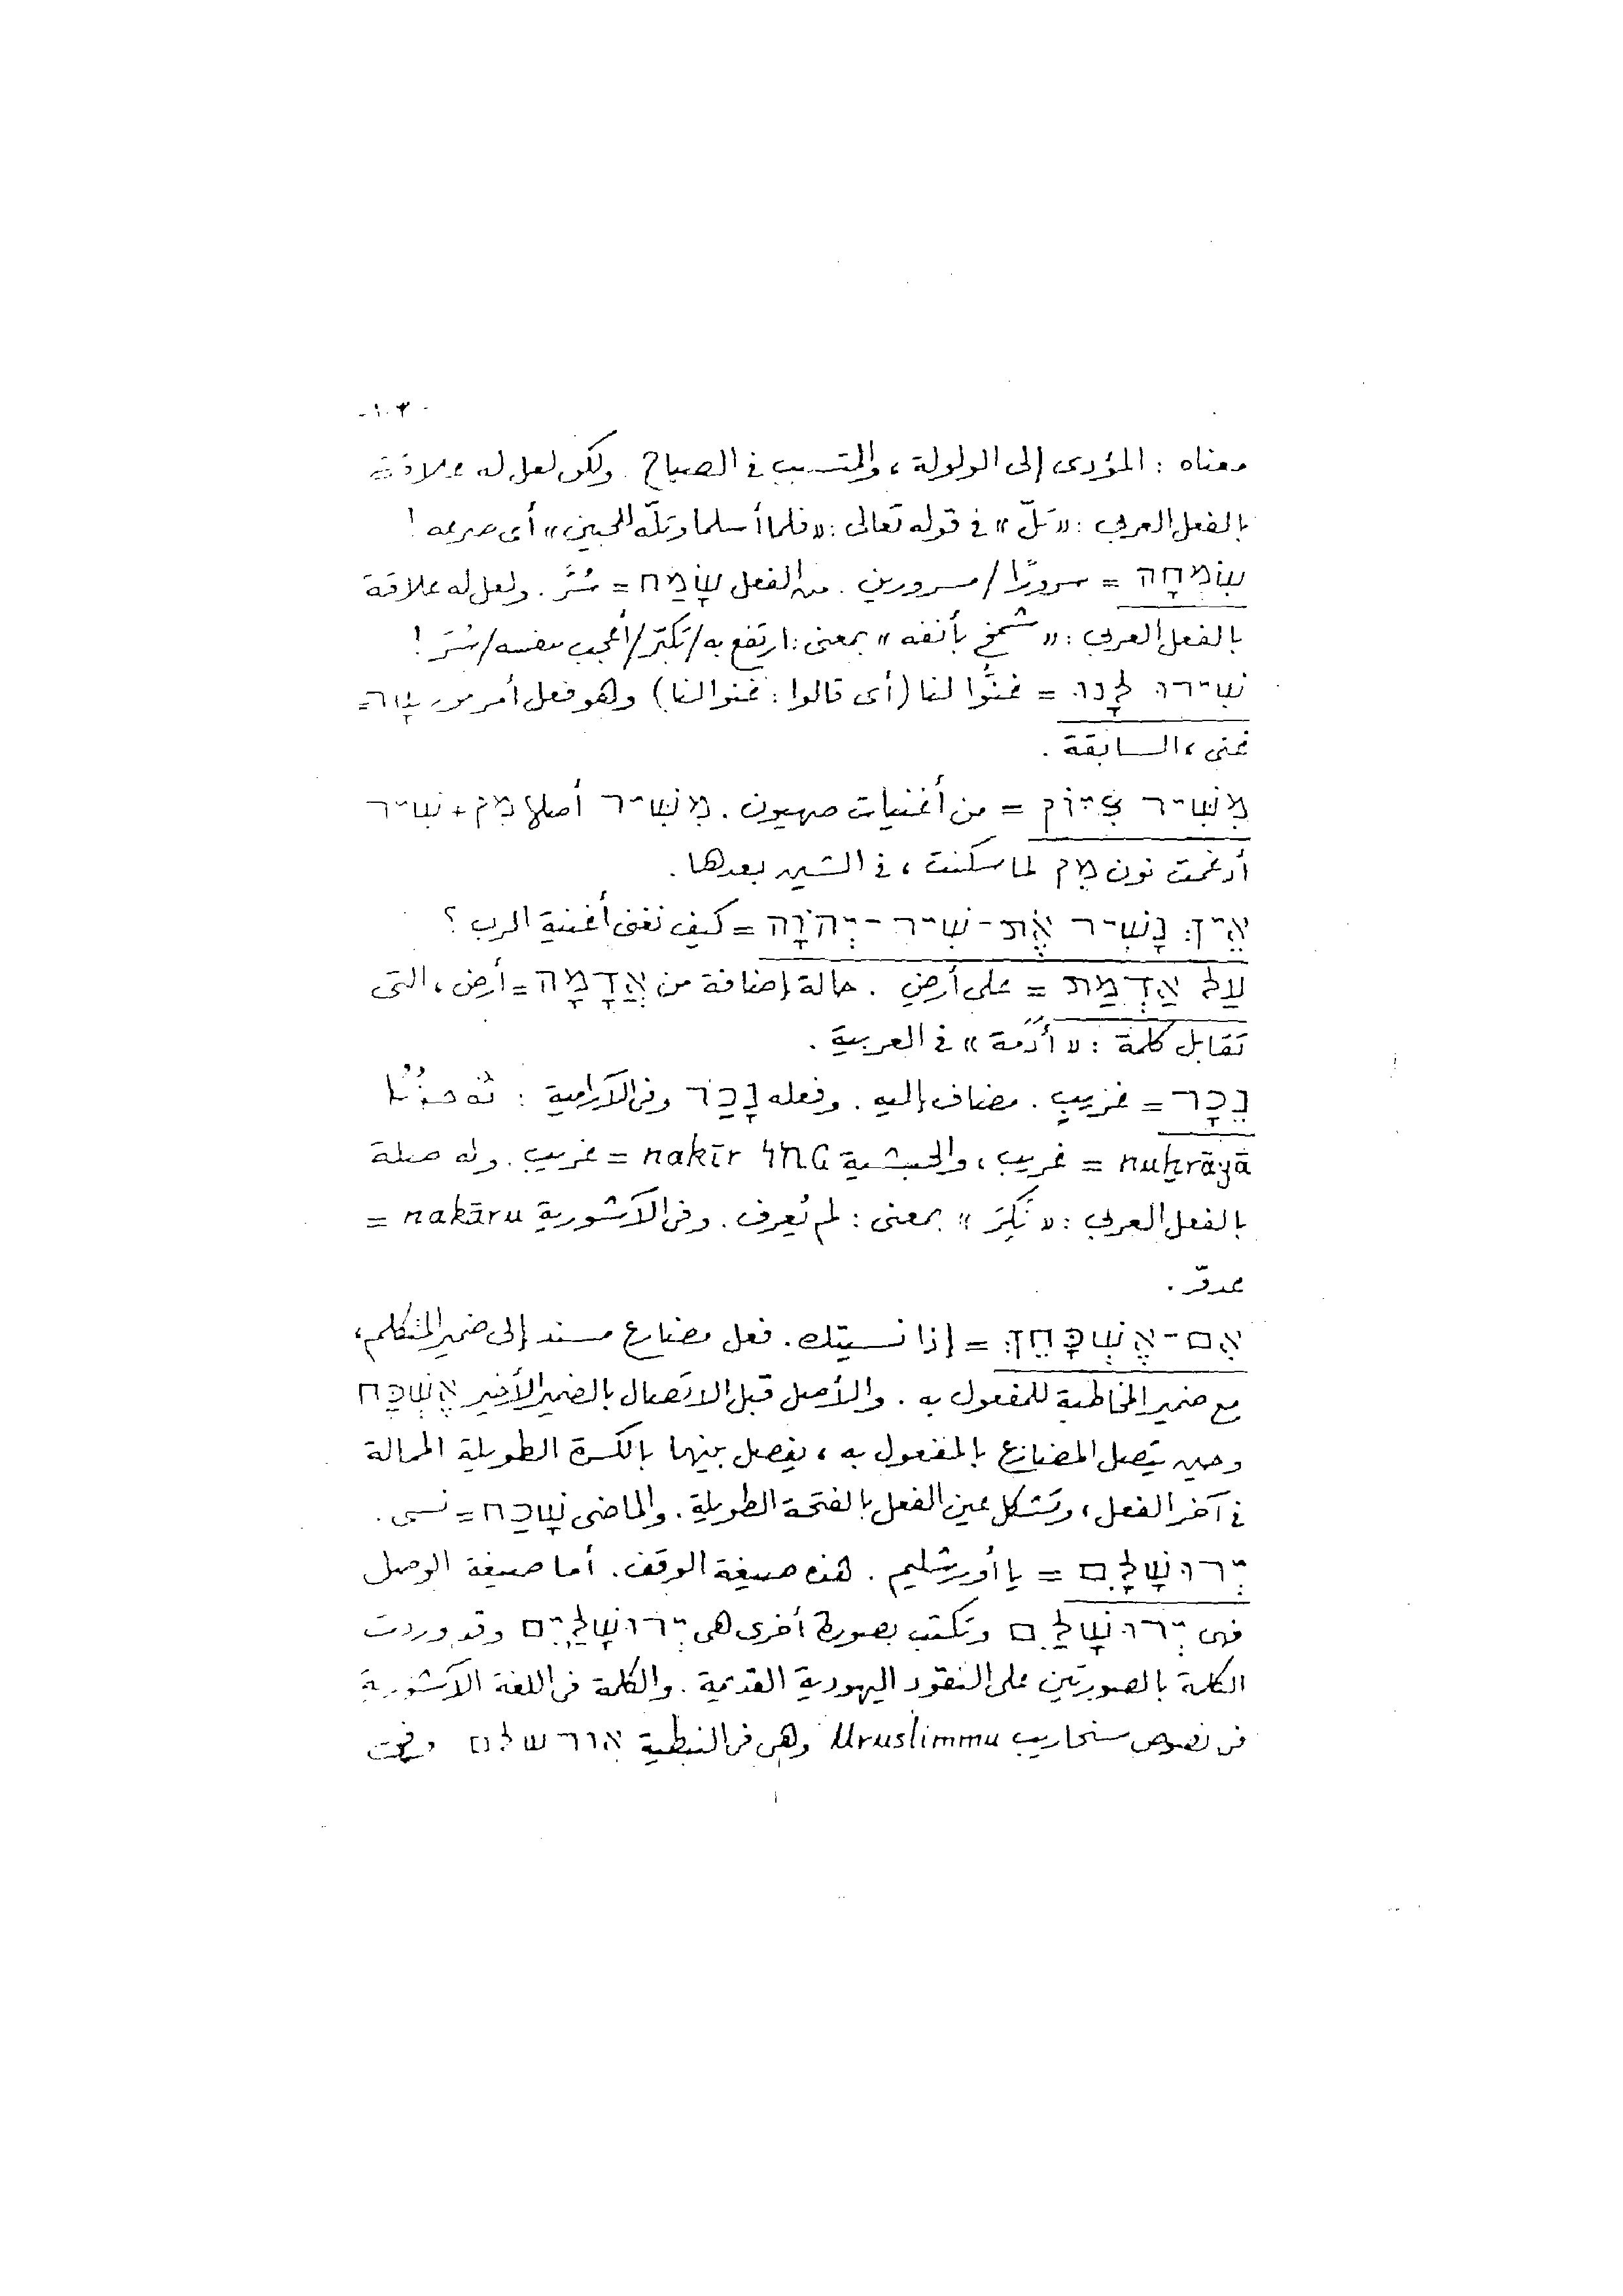 -١٠٣-
معناه : المؤدى إلى الولولة ، والمتسبب فى الصياح . ولكن لعل له علاقة
بالفعل العربى : « تلّ » فى قوله تعالى : « فلما أسلما وتلّه للجبين » أى صرعه !
שִׂמְחָה = سرورًا / مسرورين . من الفعل שָׂמַח = سُرَّ . ولعل له علاقة
بالفعل العربى : « شمخ بأنفه » بمعنى : ارتفع به / تكبّر / أعجب بنفسه / سُرَّ !
שִׁירוּ לָנוּ = غنُّوا لنا (أى قالوا : غنوا لنا) وهو فعل أمر من =
غنى ، السابقة .
מִשִּׁיר צִיּוֹן = من أغنيات صهيون . מִשִּׁיר أصلها מִן + שִׁיר
أدغمت نون מִן لما سكنت ، فى الشين بعدها .
אֵיךְ נָשִׁיר אֶת-שִׁיר-יְהוָֹה = كيف نغنى أغنية الرب ؟
עַל אַדְמַת = على أرض . حالة إضافة من אֲדָמָה = أرض ، التى
تقابل كلمة : « أَدَمَة » فى العربية .
נֵכָר = غريبٍ . مضاف إليه . وفعله נָכַר وفى الآرامية : ܢܘܟܪܝܐ
nuḫrāyā = غريب ، والحبشية ነኪር nakīr = غريب . وله صلة
بالفعل العربى : « نَكِرَ » بمعنى : لم يُعرف . وفى الآشورية nakāru =
عدوّ .
אִם-אֶשְׁכָּחֵךְ = إذا نسيتك . فعل مضارع مسند إلى ضمير المتكلم ،
مع ضمير المخاطبة للمفعول به . والأصل قبل الاتصال بالضمير الأخير אֶשְׁכַּח
وحين يتصل المضارع بالمفعول به ، يفصل بينهما بالكسرة الطويلة الممالة
فى آخر الفعل ، وتشكل عين الفعل بالفتحة الطويلة . والماضى שָׁכַח = نسى .
יְרוּשָׁלִָם = يا أورشليم . هذه صيغة الوقف . أما صيغة الوصل
فهى יְרוּשָׁלִַם وتكتب بصورة أخرى هى יְרוּשָׁלַיִם وقد وردت
الكلمة بالصورتين على النقود اليهودية القديمة . والكلمة فى اللغة الآشورية
فى نصوص سنحاريب Uruslimmu وهى فى النبطية אורשלם